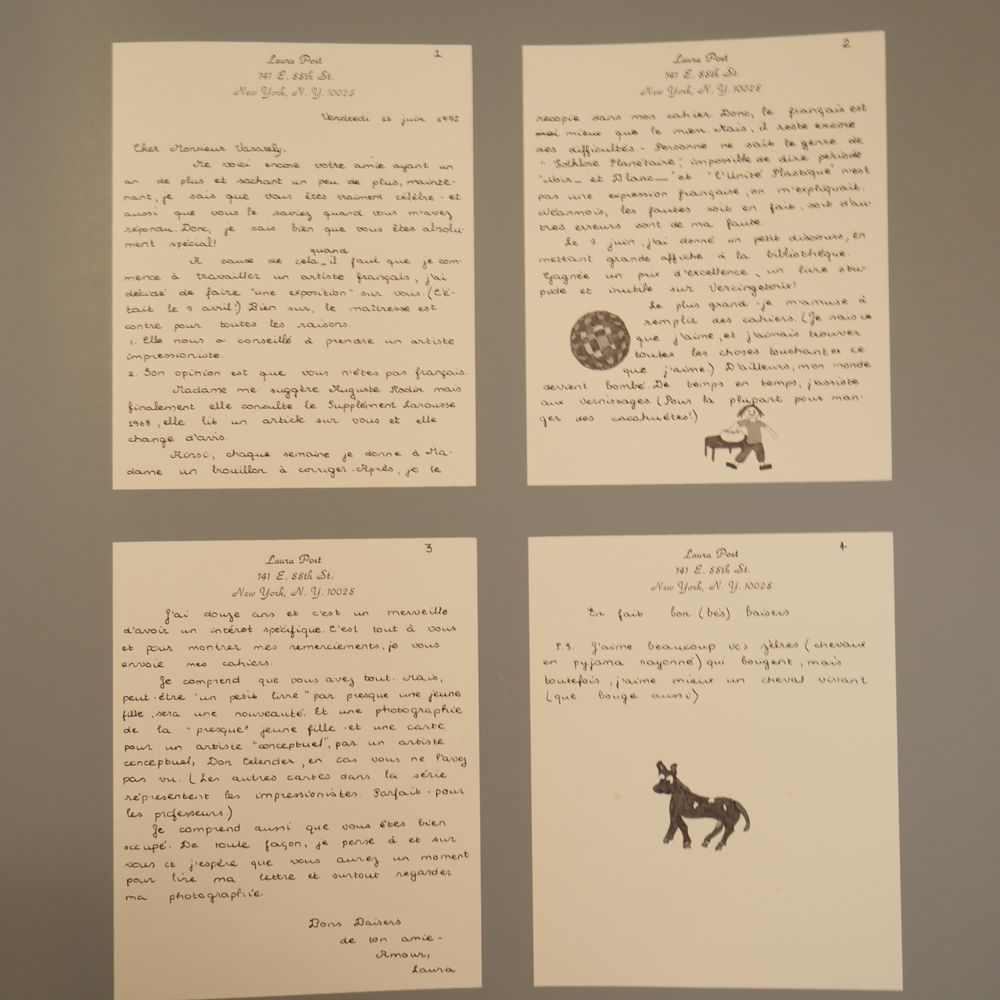 1
Laura Post
141 E. 88th St.
New York, N. Y. 10028
Vendredi juin 1972
Cher Monsieur Vasarely,
Me voici encore votre amie ayant un
an de plus et sachant un peu de plus, mainte-
nant, je sais que vous êtes vraiment célèbre - et
aussi que vous le saviez quand vous m'avez
répondu. Donc, je sais bien que vous êtes absolu-
ment spécial!
quand
A cause de cela, il faut que je com-
mence à travailler un artiste français, j'ai
décidé de faire "une exposition" sur vous. (C'é-
tait le 9 avril!) Bien sur, le maîtresse est
contre pour toutes les raisons.
1. Elle nous a conseillé à prendre un artiste
impressioniste.
2. Son opinion est que vous n'êtes pas français.
Madame me suggère Auguste Rodin mais
finalement elle consulte le Supplément Larousse
1968, elle lit un article sur vous et elle
change d'avis.
Ainsi, chaque semaine je donne à Ma-
dame un brouillon à corriger. Après, je le
2
Laura Post
141 E. 88th St.
New York, N. Y. 10028
recopie dans mon cahier. Donc, le français est
mieux que le mien. Mais, il reste encore
des difficultés - Personne ne sait le genre de
"Folklore Planétaire", impossible de dire période
"Noir et Blanc" et "l'Unité Plastique" n'est
pas une expression française, on m'expliquait.
Néanmoins, les fautes soit en fait, soit d'au-
tres erreurs sont de ma faute.
Le 9 juin, j'ai donné un petit discours, en
mettant grande affiche à la bibliothèque.
Gagnée un prix d'excellence, un livre stu-
pide et inutile sur Vercingetorix!
Le plus grand - je m'amuse à
remplir des cahiers. (Je sais ce
que j'aime, et j'aimais trouver
toutes les choses touchantes ce
que j'aime) D'ailleurs, mon monde
devient bombé. De temps en temps, j'assiste
aux vernissages. (Pour la plupart pour man-
ger des cacahuètes!)
3
Laura Post
141 E. 88th St.
New York, N. Y. 10028
J'ai douze ans et c'est un merveille
d'avoir un intéret spécifique. C'est tout à vous
et pour montrer mes remerciements, je vous
envoie mes cahiers.
Je comprend que vous avez tout. Mais,
peut-être "un petit livre" par presque une jeune
fille, sera une nouveauté. Et une photographie
de la "presque" jeune fille - et une carte
pour un artiste "conceptuel", par un artiste
conceptuel, Don Celender, en cas vous ne l'avez
pas vu. (Les autres cartes dans la série
représentent les impressionistes. Parfait - pour
les professeurs.)
Je comprend aussi que vous êtes bien
occupé. De toute façon, je pense à et sur
vous et j'espère que vous aurez un moment
pour lire ma lettre et surtout regarder
ma photographie.
Bons Baisers
de ton amie -
Amour,
Laura
4
Laura Post
141 E. 88th St.
New York, N. Y. 10028
En fait bon (bes) baisers
P.S. J'aime beaucoup vos zèbres (chevaux
en pyjama rayonné) qui bougent, mais
toutefois, j'aime mieux un cheval vivant
(que bouge aussi)